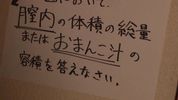 膣内の体積の総量
またはおまんこ汁の
容積を答えなさい。